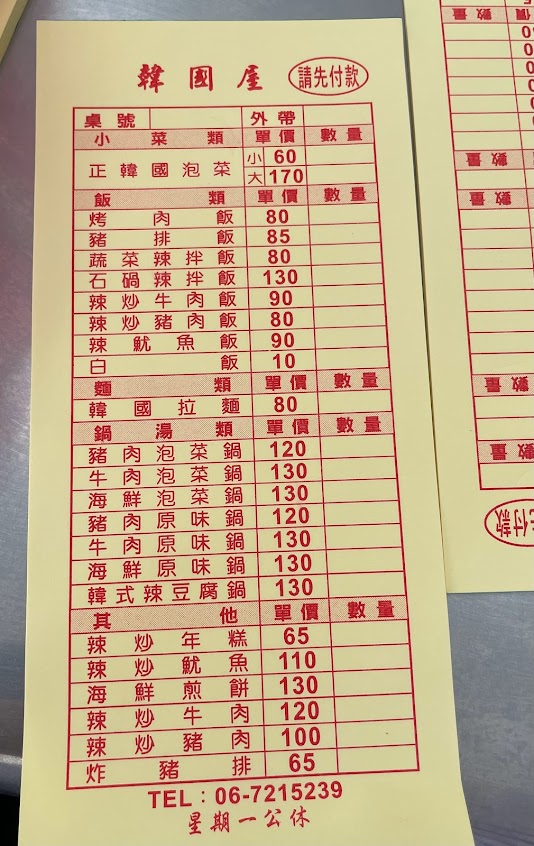 韓國屋 請先付款
桌號 外帶
小菜類 單價 數量
正韓國泡菜 小 60
大 170
飯類 單價 數量
烤肉飯 80
豬排飯 85
蔬菜辣拌飯 80
石鍋辣拌飯 130
辣炒牛肉飯 90
辣炒豬肉飯 80
辣魷魚飯 90
白飯 10
麵類 單價 數量
韓國拉麵 80
鍋湯類 單價 數量
豬肉泡菜鍋 120
牛肉泡菜鍋 130
海鮮泡菜鍋 130
豬肉原味鍋 120
牛肉原味鍋 130
海鮮原味鍋 130
韓式辣豆腐鍋 130
其他 單價 數量
辣炒年糕 65
辣炒魷魚 110
海鮮煎餅 130
辣炒牛肉 120
辣炒豬肉 100
炸豬排 65
TEL：06-7215239
星期一公休
數量
數量
數量
數量
數量
付款